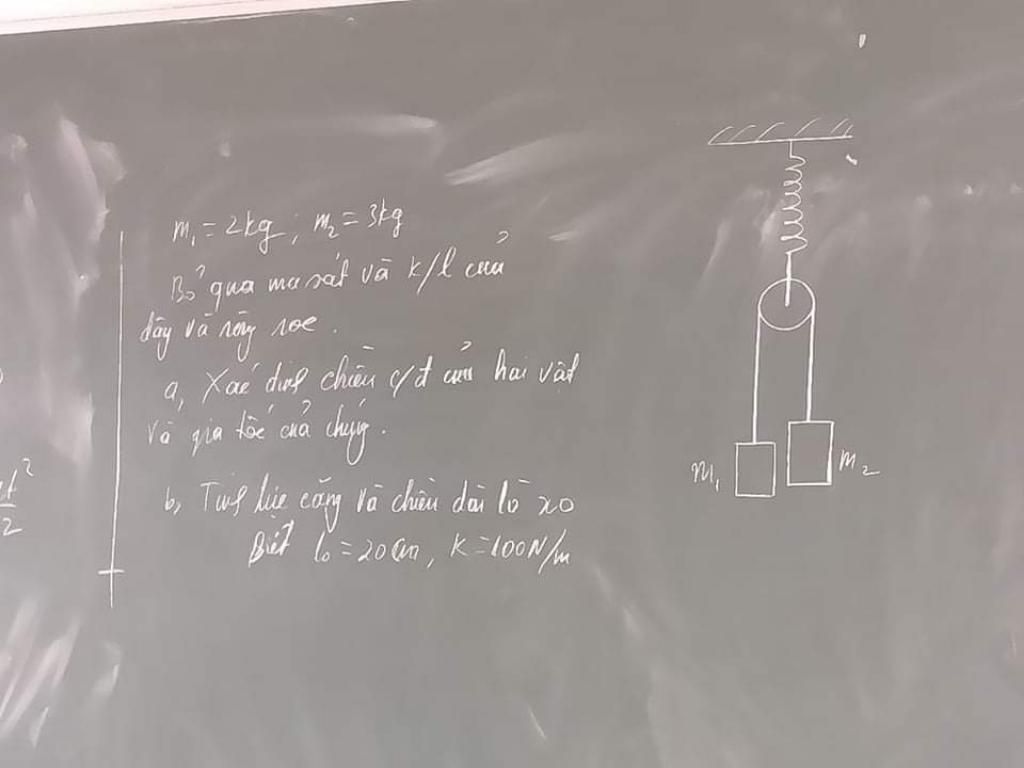 m₁ = 2kg ; m₂ = 3kg
Bỏ qua ma sát và k/l của
dây và ròng rọc .
a, Xác định chiều c/đ của hai vật
và gia tốc của chúng .
b, Tính lực căng và chiều dài lò xo
Biết l₀ = 20cm, K = 100N/m
m₁
m₂
t²
2